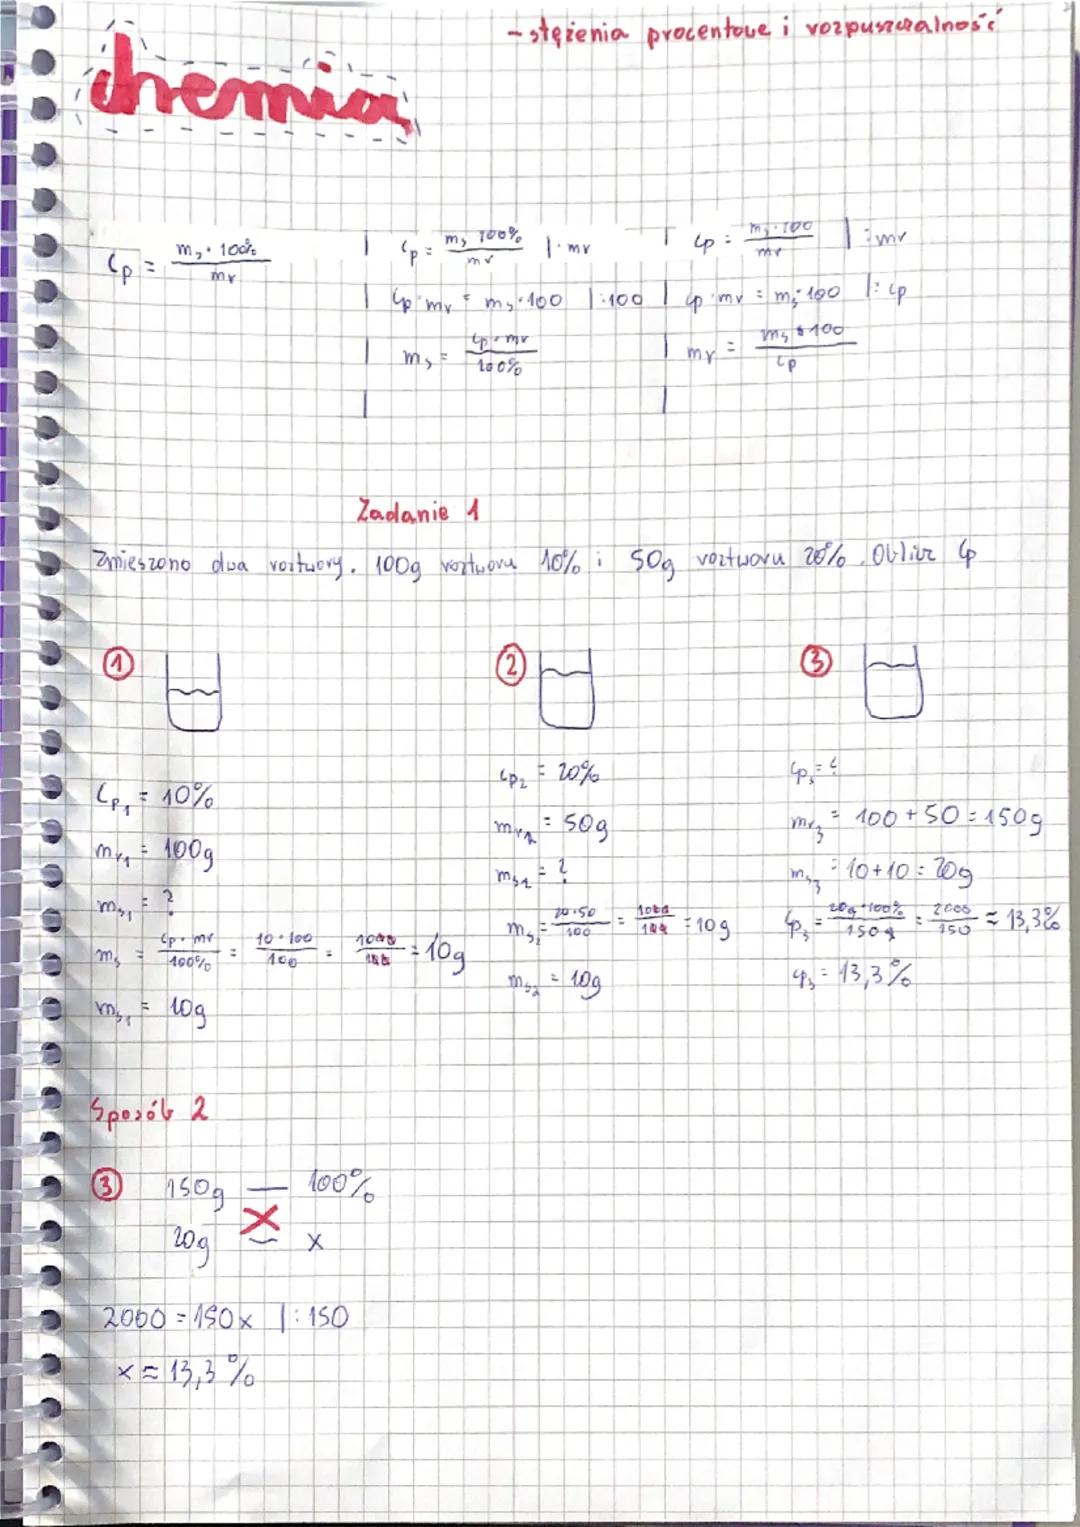 - stężenia procentowe i rozpuszczalność
chemia
Cp = ms · 100% / mr
Cp = ms 100% / mr | · mr
Cp · mr = ms · 100 | : 100
ms = Cp · mr / 100%
Cp = ms · 100 / mr | : mr
Cp · mr = ms · 100 | : Cp
mr = ms · 100 / Cp
Zadanie 1
Zmieszano dwa roztwory. 100g roztworu 10% i 50g roztworu 20%. Oblicz Cp
①
Cp₁ = 10%
mr₁ = 100g
ms₁ = ?
ms = Cp · mr / 100% = 10 · 100 / 100 = 1000 / 100 = 10g
ms₁ = 10g
②
Cp₂ = 20%
mr₂ = 50g
ms₂ = ?
ms₂ = 20 · 50 / 100 = 1000 / 100 = 10g
ms₂ = 10g
③
Cp₃ = ?
mr₃ = 100 + 50 = 150g
ms₃ = 10 + 10 = 20g
Cp₃ = 20g · 100% / 150g = 2000 / 150 ≈ 13,3%
Cp₃ = 13,3%
Sposób 2
③ 150g — 100%
20g — x
2000 = 150x | : 150
x ≈ 13,3%